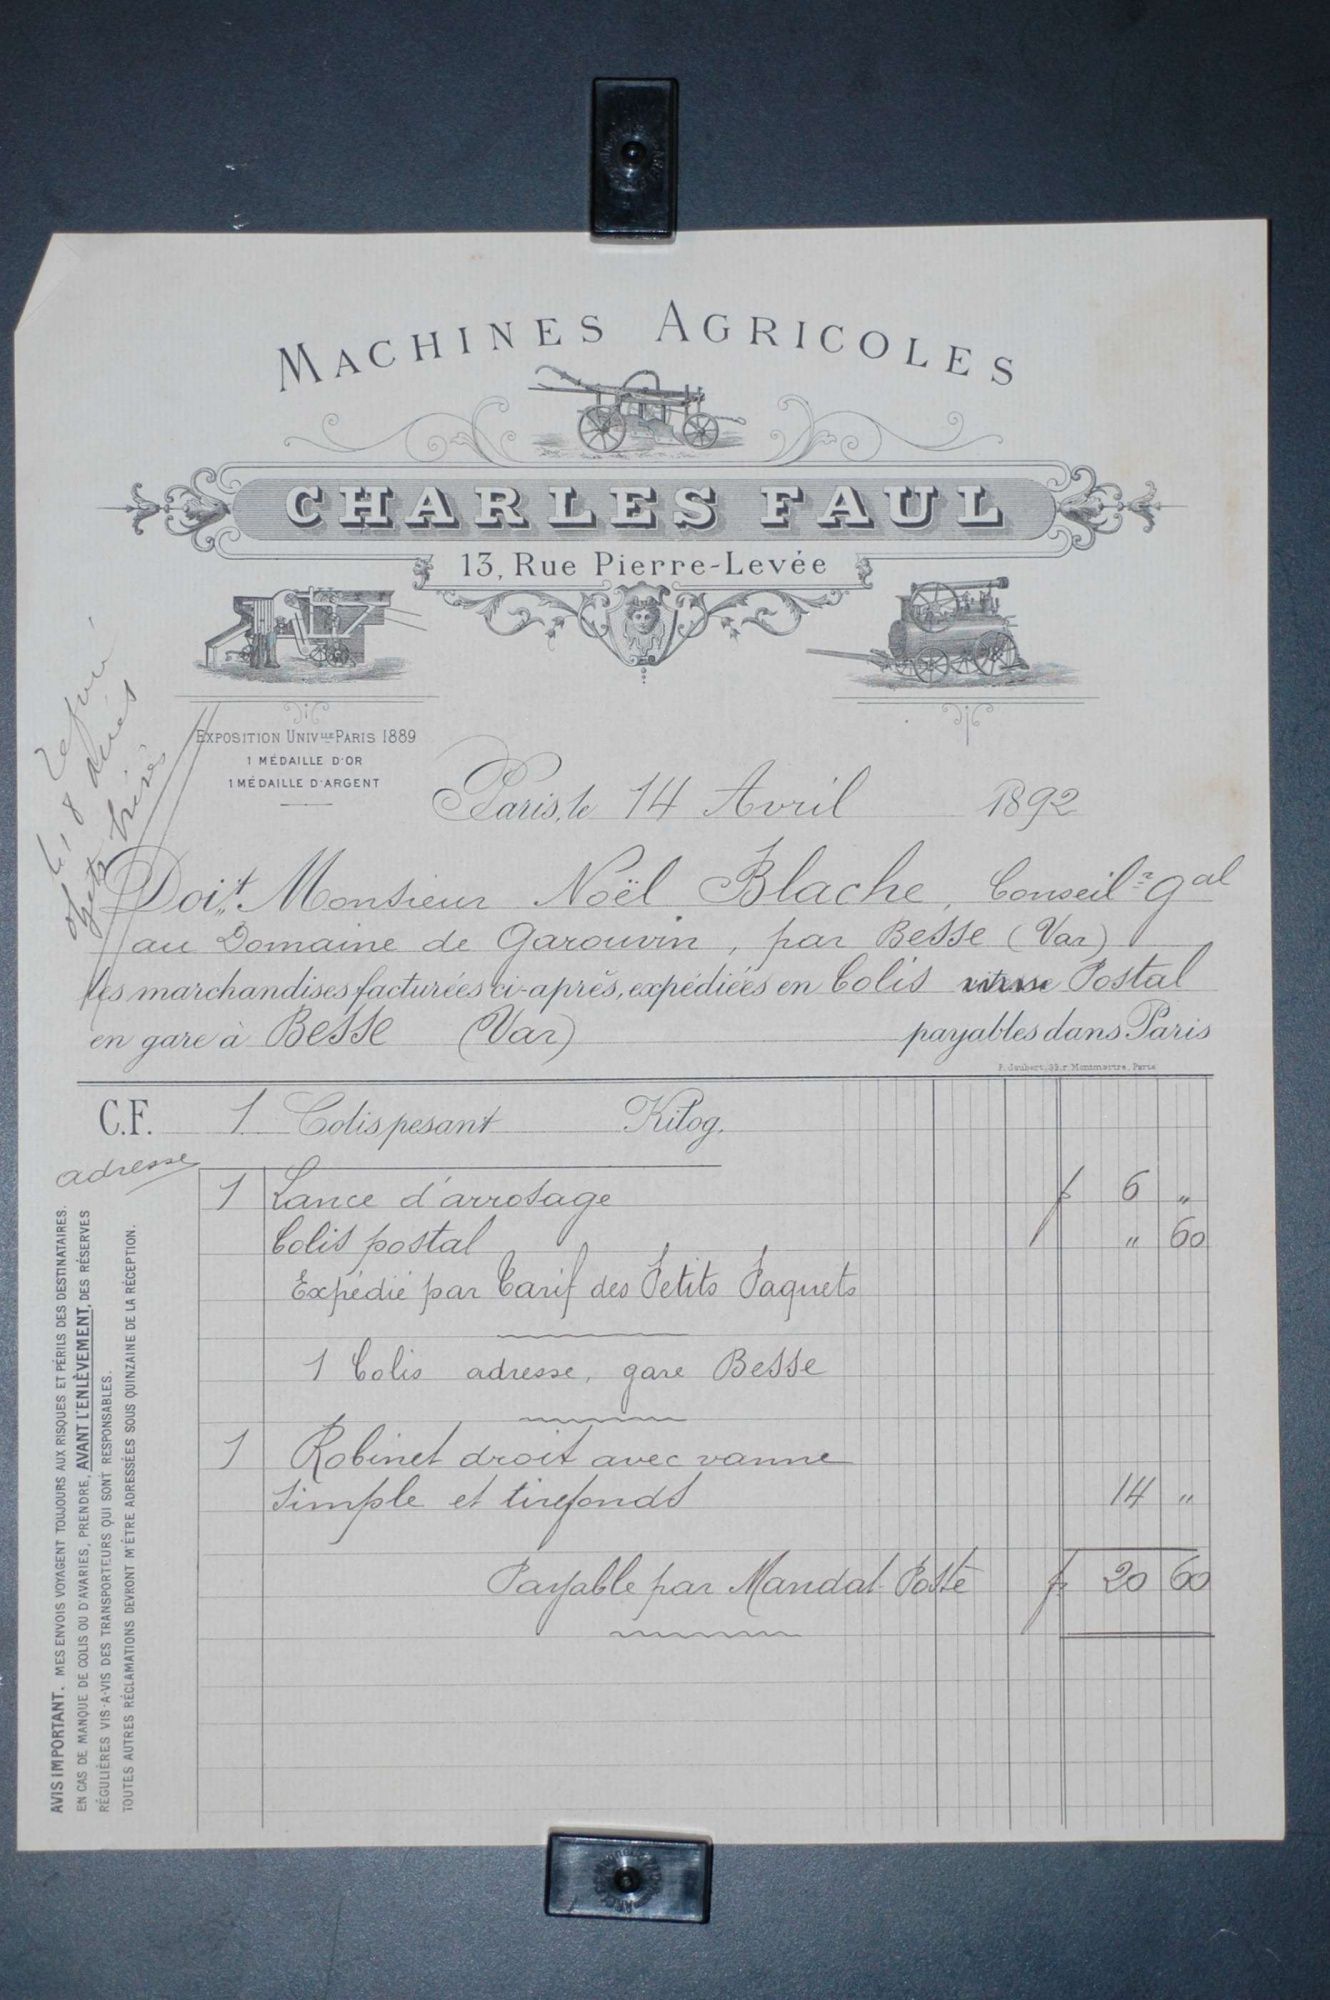 MACHINES AGRICOLES
CHARLES FAUL
13, Rue Pierre-Levée
EXPOSITION UNIVLLE PARIS 1889
1 MÉDAILLE D'OR
1 MÉDAILLE D'ARGENT
Paris, le 14 Avril 1892
Doit Monsieur Noël Blache, Conseilr gal
au Domaine de Garouvin, par Besse (Var)
les marchandises facturées ci-après, expédiées en Colis vitesse Postal
en gare à Besse (Var) payables dans Paris
P. Joubert, 39, r. Montmartre, Paris
C.F. 1 Colis pesant Kilog.
adresse
1 Lance d'arrosage f 6 "
Colis postal " 60
Expédié par Tarif des Petits Paquets
1 Colis adresse, gare Besse
1 Robinet droit avec vanne
simple et tirefonds 14 "
Payable par Mandat-Poste f. 20 60
AVIS IMPORTANT. MES ENVOIS VOYAGENT TOUJOURS AUX RISQUES ET PÉRILS DES DESTINATAIRES.
EN CAS DE MANQUE DE COLIS OU D'AVARIES, PRENDRE, AVANT L'ENLÈVEMENT, DES RÉSERVES
RÉGULIÈRES VIS-A-VIS DES TRANSPORTEURS QUI SONT RESPONSABLES.
TOUTES AUTRES RÉCLAMATIONS DEVRONT M'ÊTRE ADRESSÉES SOUS QUINZAINE DE LA RÉCEPTION.